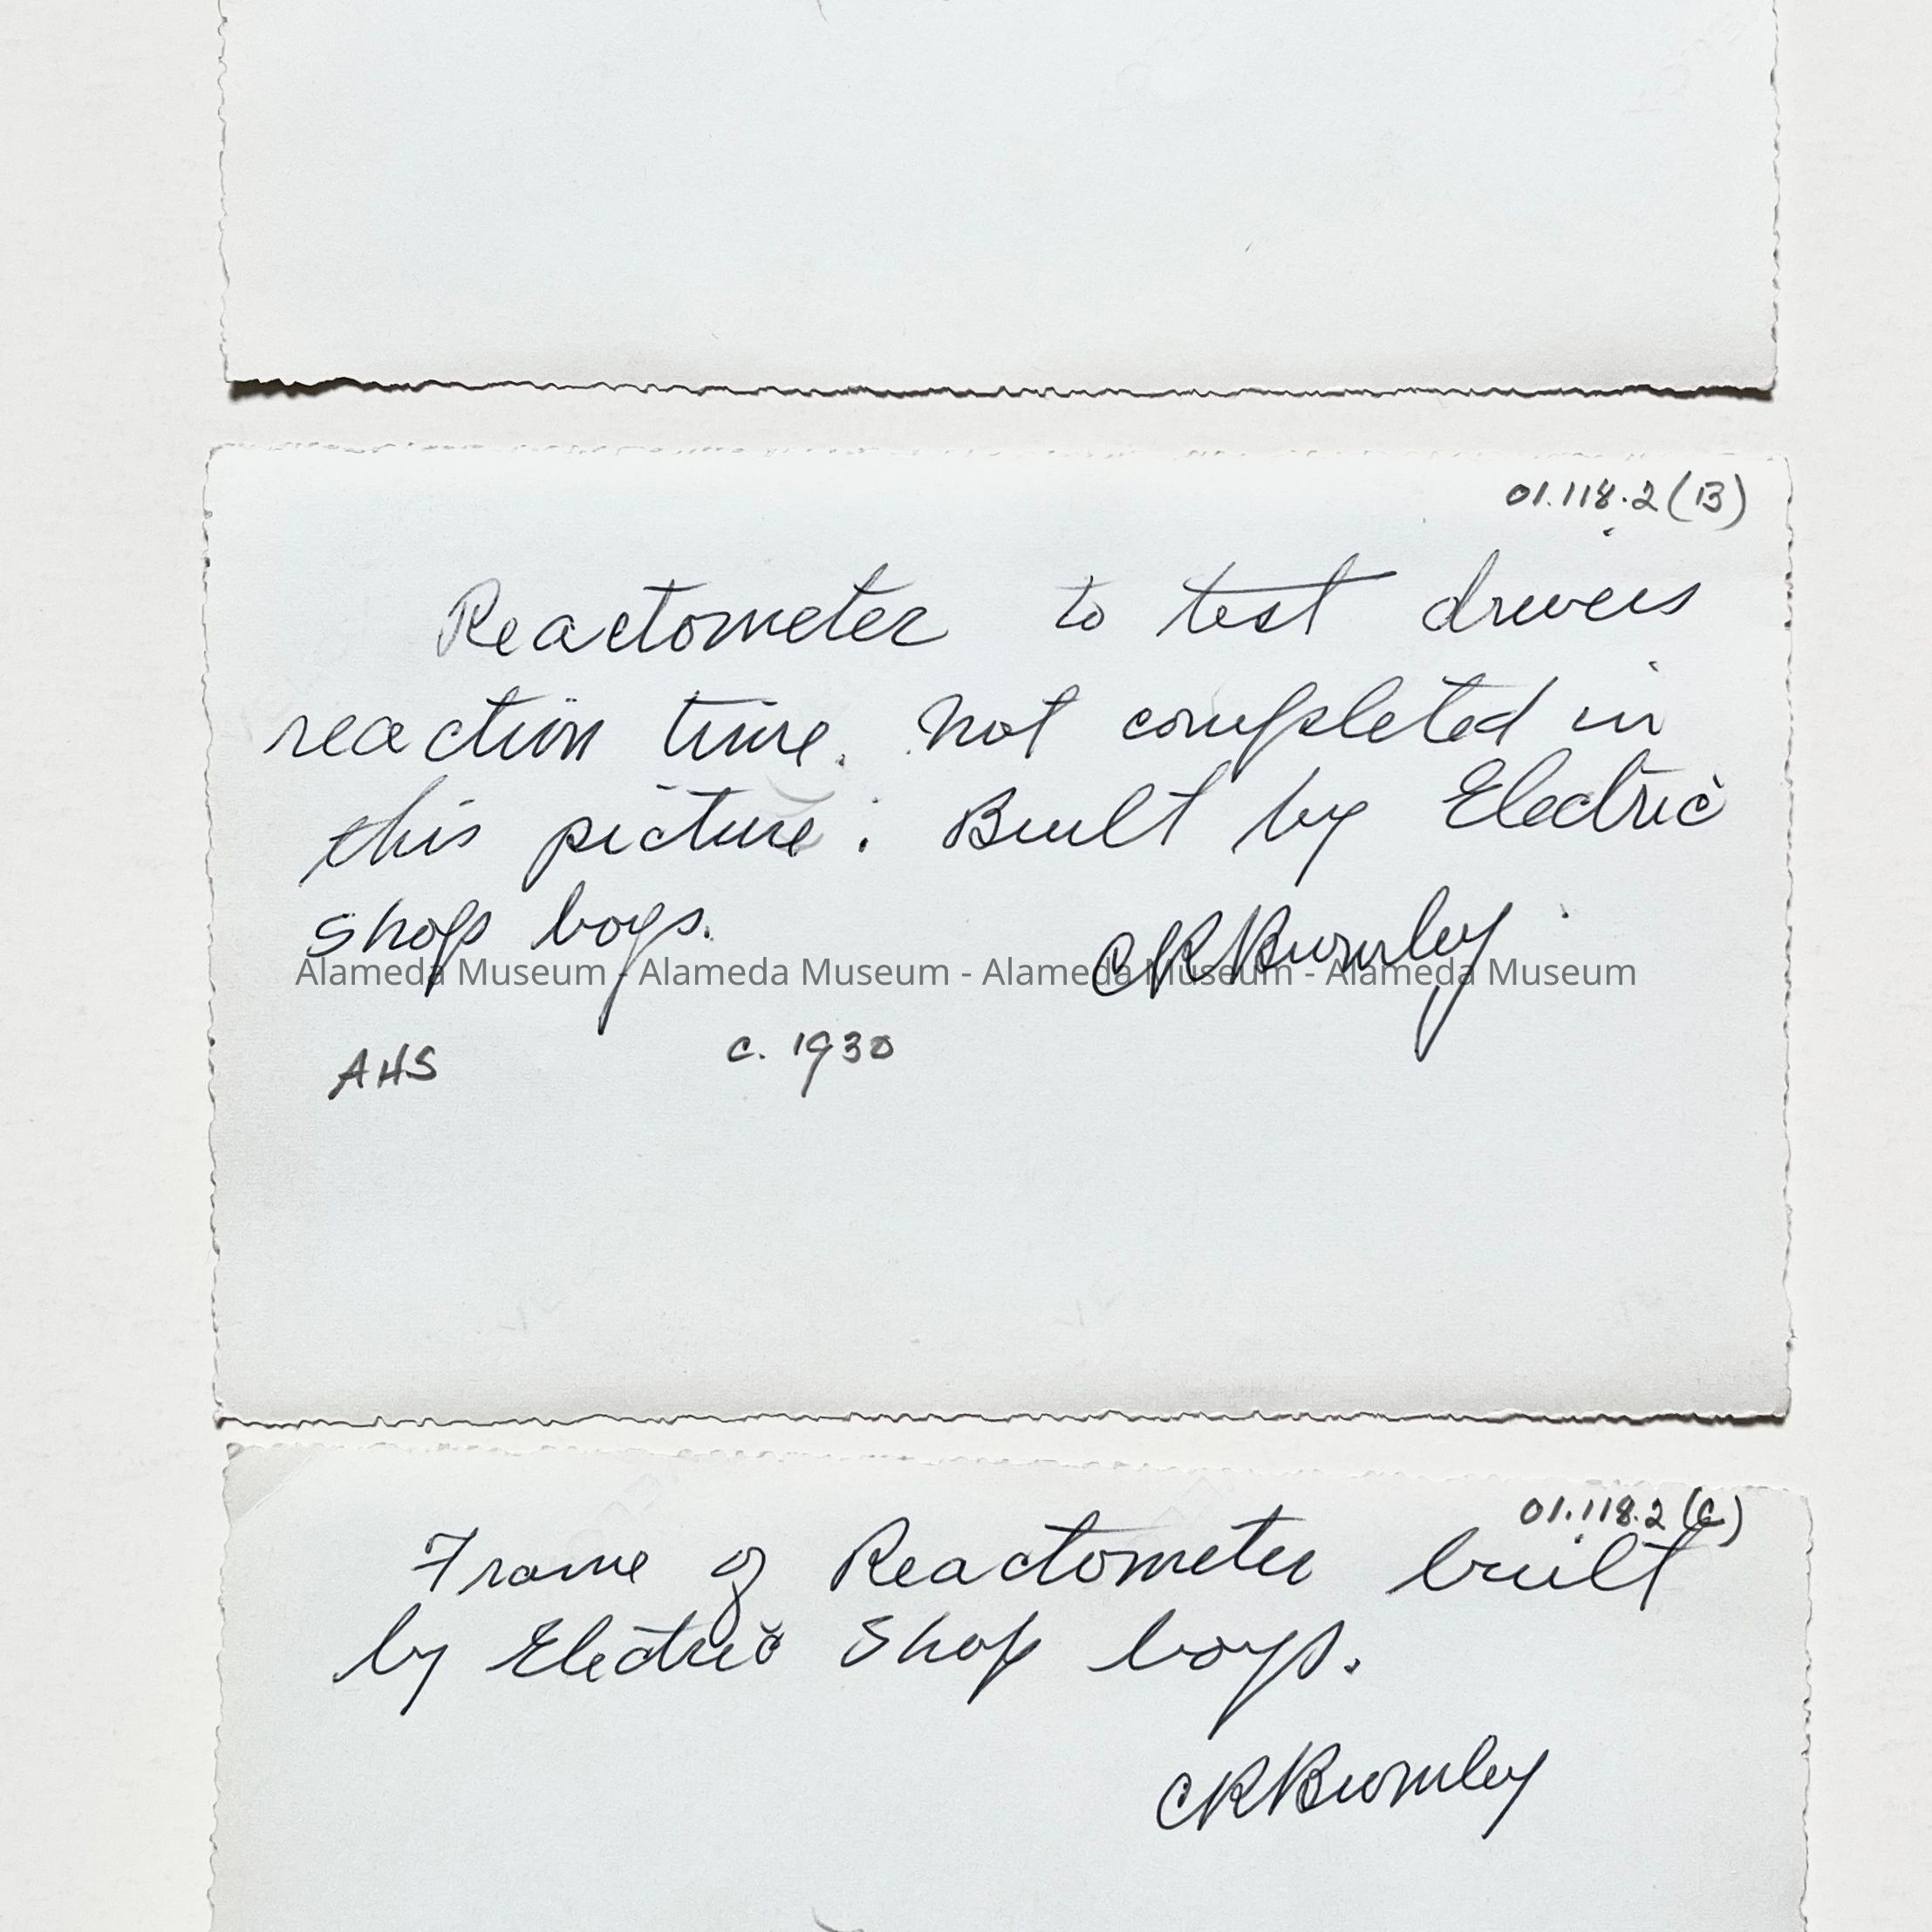 01.118.2(B)
Reactometer to test drivers
reaction time. Not completed in
this picture. Built by Electric
Shop boys.
CRBromley
Alameda Museum - Alameda Museum - Alameda Museum - Alameda Museum
AHS c. 1930
01.118.2(C)
Frame of Reactometer built
by Electric Shop boys.
CRBromley